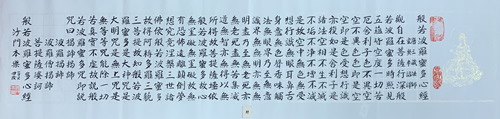 般若波羅蜜多心經
觀自在菩薩行深般
若波羅蜜多時照見
五蘊皆空度一切苦
厄舍利子色不異空
空不異色色即是空
空即是色受想行識
亦復如是舍利子是
諸法空相不生不滅
不垢不淨不增不減
是故空中無色無受
想行識無眼耳鼻舌
身意無色聲香味觸
法無眼界乃至無意
識界無無明亦無無
明盡乃至無老死亦
無老死盡無苦集滅
道無智亦無得以無
所得故菩提薩埵依
般若波羅蜜多故心
無罣礙無罣礙故無
有恐怖遠離顛倒夢
想究竟涅槃三世諸
佛依般若波羅蜜多
故得阿耨多羅三藐
三菩提故知般若波
羅蜜多是大神咒是
大明咒是無上咒是
無等等咒能除一切
苦真實不虛故說般
若波羅蜜多咒即說
咒曰
揭諦揭諦
波羅揭諦
波羅僧揭諦
菩提薩婆訶
般若波羅蜜多心經
沙門本樂